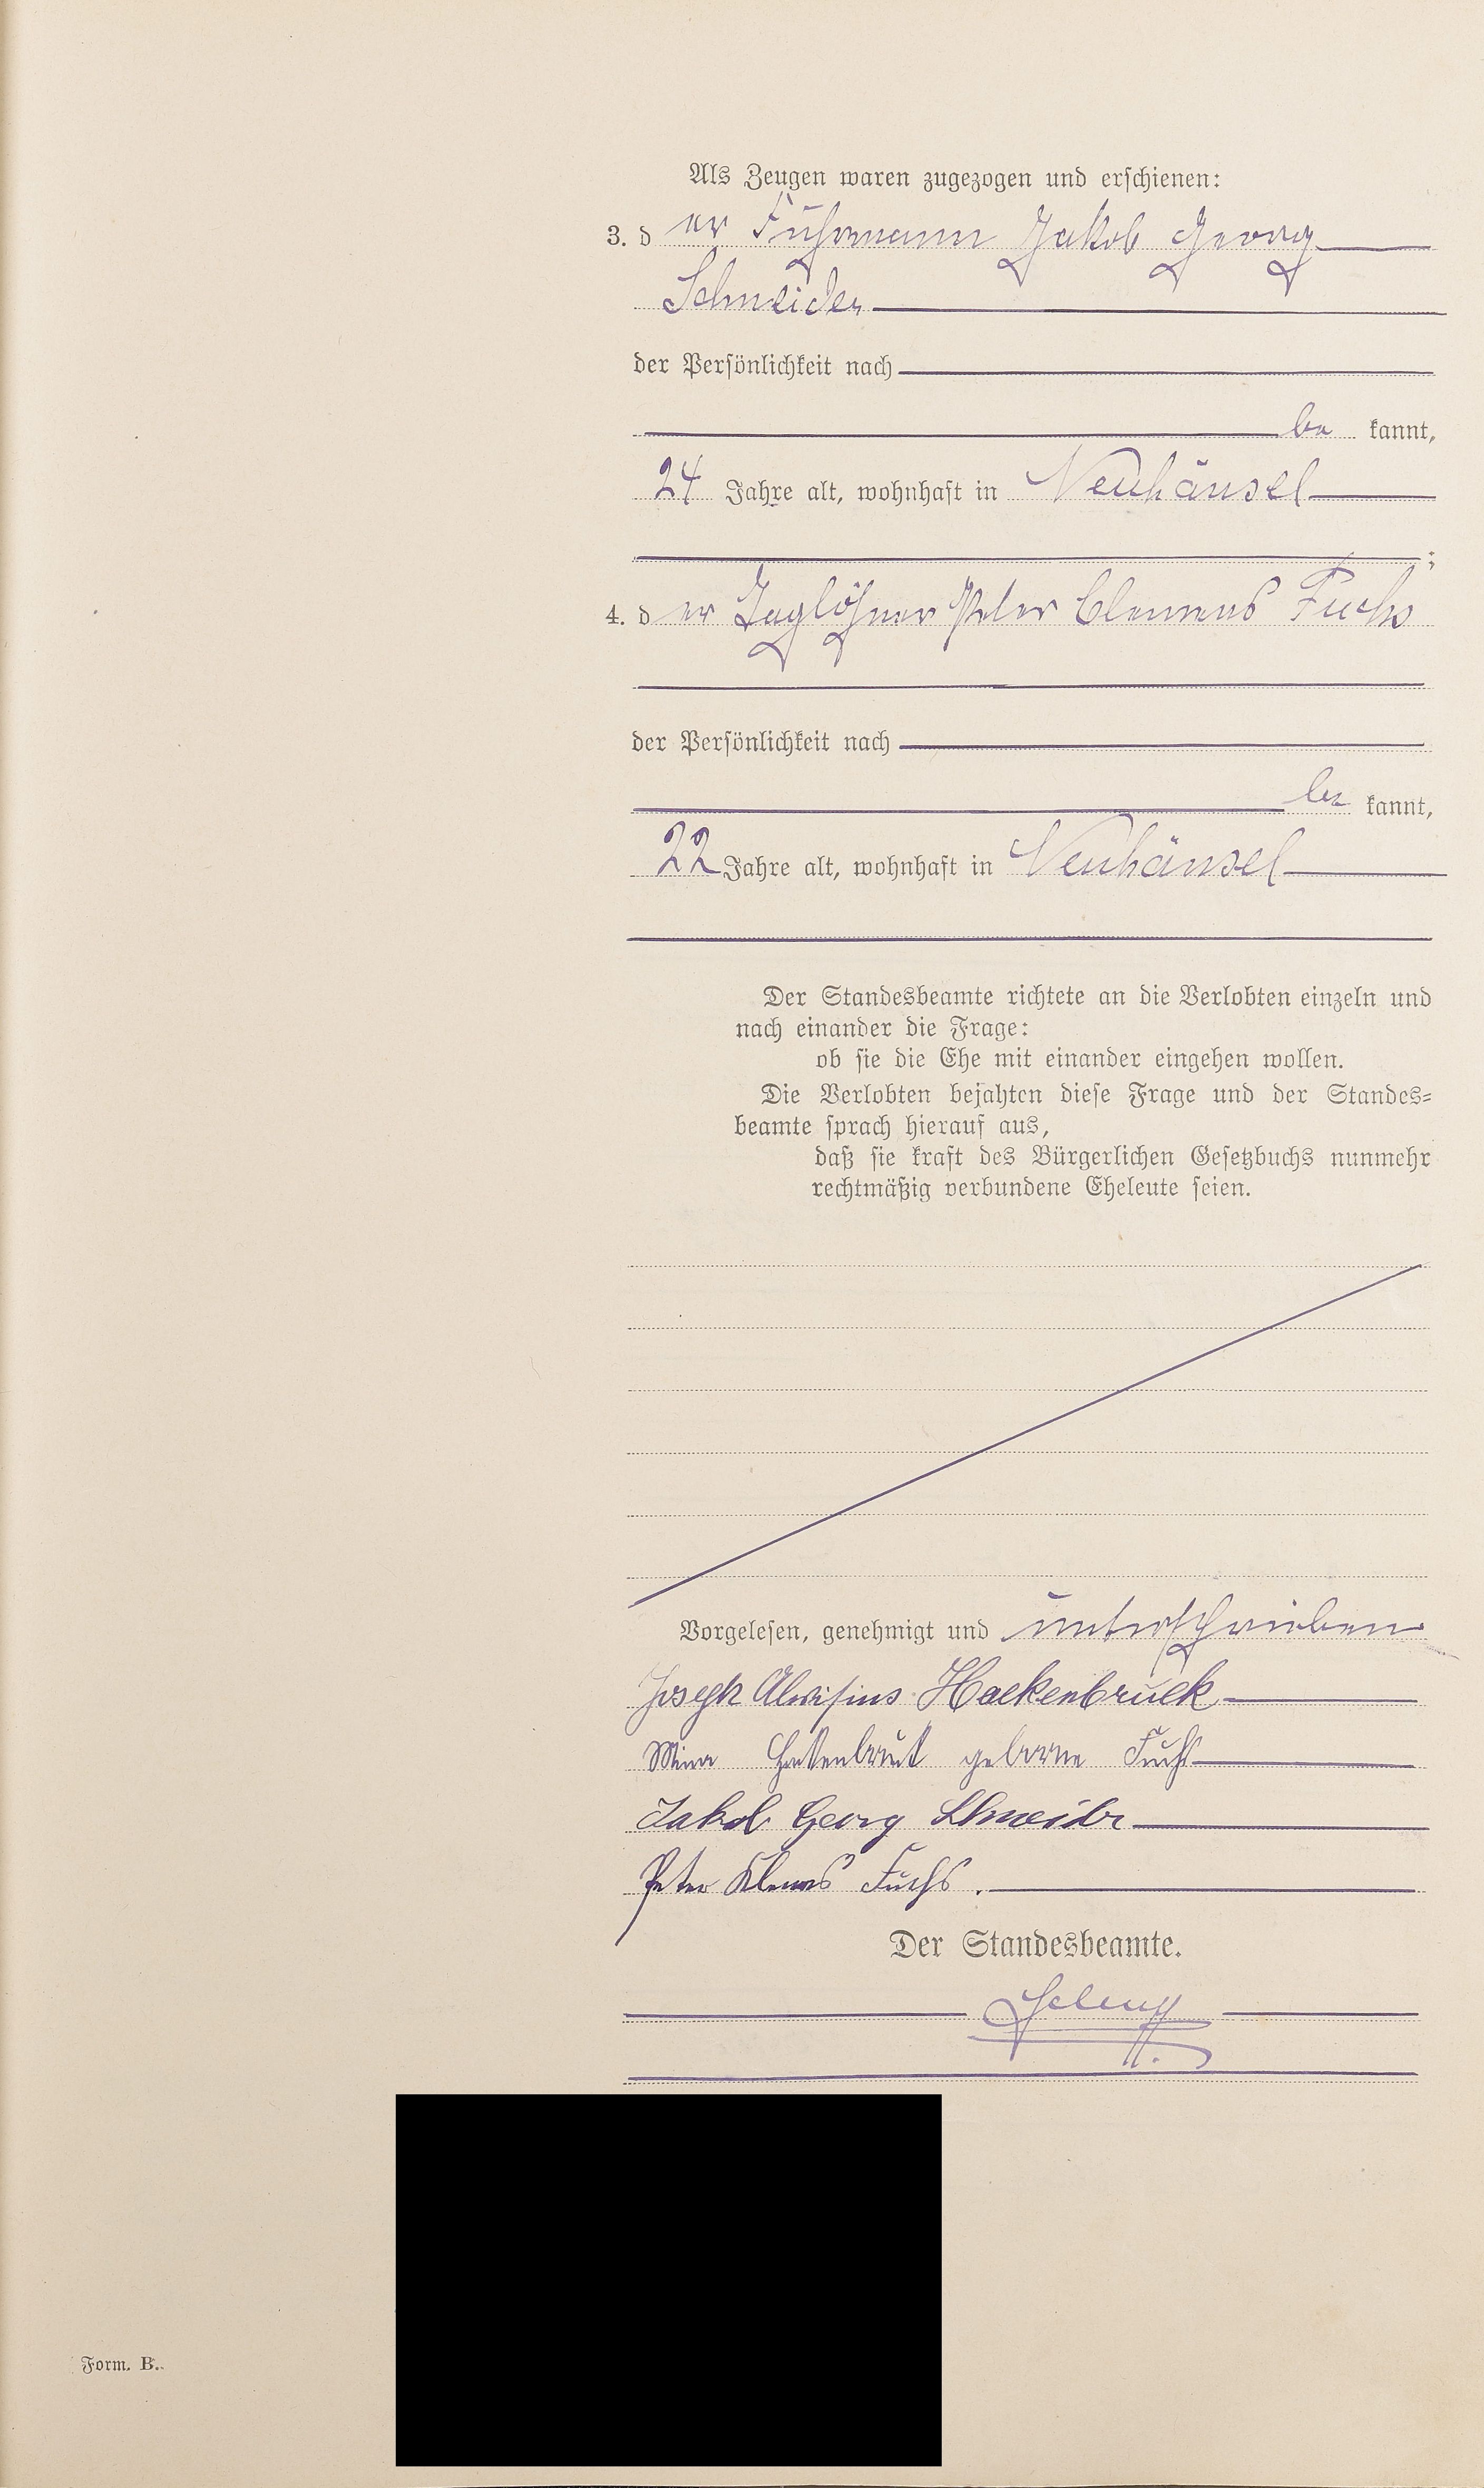 Als Zeugen waren zugezogen und erschienen:
3. der Fuhrmann Jakob Georg
Schneider
der Persönlichkeit nach
be kannt,
24 Jahre alt, wohnhaft in Neuhäusel
;
4. der Taglöhner Peter Clemens Fuchs
der Persönlichkeit nach
be kannt,
22 Jahre alt, wohnhaft in Neuhäusel
Der Standesbeamte richtete an die Verlobten einzeln und
nach einander die Frage:
ob sie die Ehe mit einander eingehen wollen.
Die Verlobten bejahten diese Frage und der Standes-
beamte sprach hierauf aus,
daß sie kraft des Bürgerlichen Gesetzbuchs nunmehr
rechtmäßig verbundene Eheleute seien.
Vorgelesen, genehmigt und unterschrieben
Joseph Aloisius Hackenbruck
Mina Hakenbruk geborne Fuchs
Jakob Georg Schneider
Peter Klemens Fuchs.
Der Standesbeamte.
Form. B.